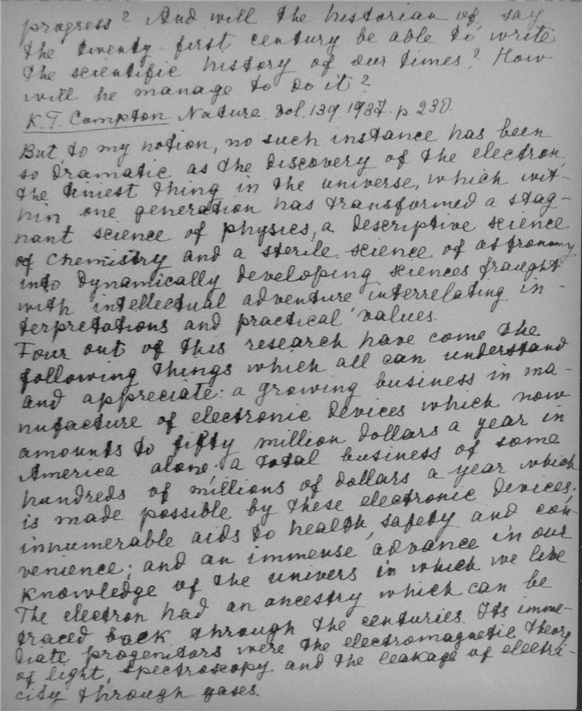 progress? And will the historian of, say
the twenty-first century be able to write
the scientific history of our times? How
will he manage to do it?
K.T. Compton Nature Vol. 139 1937. p 230.
But to my notion, no such instance has been
so dramatic as the discovery of the electron,
the tiniest thing in the universe, which wit-
hin one generation has transformed a stag-
nant science of physics, a descriptive science
of chemistry and a sterile science of astronomy
into dynamically developing sciences fraught
with intellectual adventure interrelating in-
terpretations and practical values.
Four out of this research have come the
following things which all can understand
and appreciate: a growing business in ma-
nufacture of electronic devices which now
amounts to fifty million dollars a year in
America alone; a total business of some
hundreds of millions of dollars a year which
is made possible by these electronic devices;
innumerable aids to health, safety and con-
venience; and an immense advance in our
knowledge of the univers in which we live
The electron had an ancestry which can be
traced back through the centuries. Its imme-
diate progenitors were the electromagnetic theory
of light, spectroscopy and the leakage of electri-
city through gases.